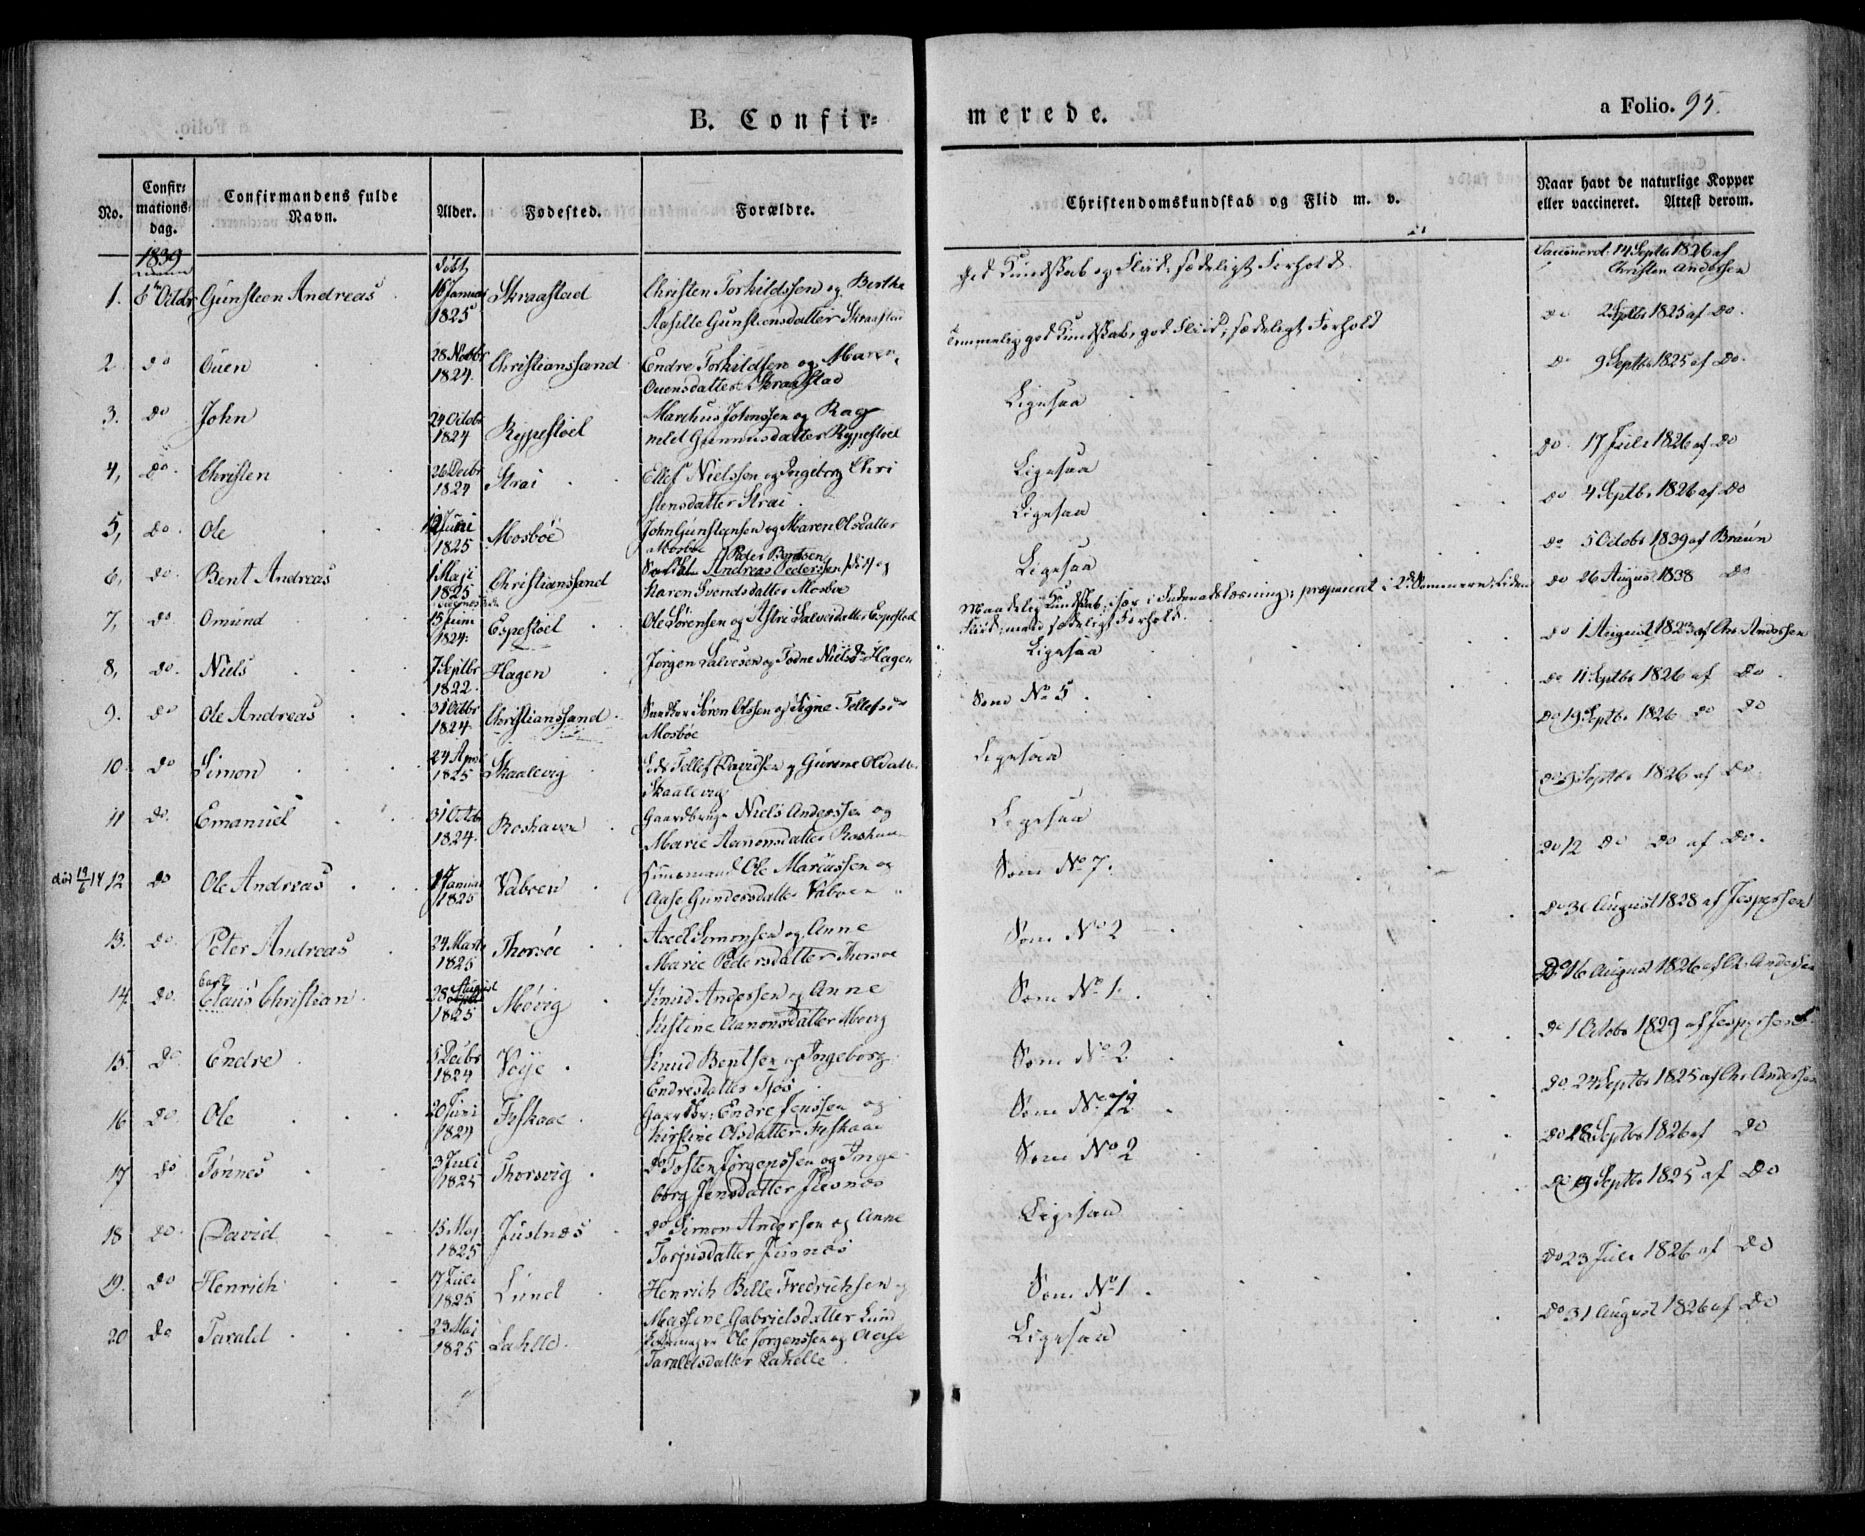 B. Confir=
merede.
a Folio. 95.
No.
Confir=
mations=
dag.
Confirmandens fulde
Navn.
Alder.
Fødested.
Forældre.
Christendomskundskab og Flid m. v.
Naar havt de naturlige Kopper
eller vaccineret. Attest derom.
1839
1. 6te Octbr Gunsteen Andreas født 16 Januar 1825 Skraastad Christen Torhildssen og Berthe
Gunsteensdatter Skraastad
god Kundskab og Fliid, sædeligt Forhold. Vaccineret 14 Septb 1826 af
Christen Andersen
2. do Ouen 28 Novbr 1824 Christianssand Endre Torhildsen og Maren
Ouensdatter Skraastad
temmelig god Kundskab, god Fliid, sædeligt Forhold do 2 Septb 1825 af do.
3. do John 24 Octobr 1824 Rypestøel Marchus Johnssen og Rag
nild Gunnusdatter Rypestøel
Ligesaa do 9 Septb 1825 af do.
4, do. Christen 26 Decbr 1824 Strai Ellef Nielssen og Ingeborg Chri
stensdatter Strai.
Ligesaa do. 17 Juli 1826 af do
5, do. Ole Juni 1825 Mosbøe John Gunsteensen og Maren Olsdatter
Mosbøe
Ligesaa do 4 Septb. 1826 af do
6, do. Bent Andreas 1 Maji 1825 Christianssand Peder Bentsen
Andreas Pedersen og
Karen Svendsdatter Mosbøe
Ligesaa do 5 Octob 1839 af Braun
7, do Omund 15 Juni 1824. Espestøel Ole Sørensen og Astri Salveidatter Espestøel
Maadelig Kundskab, især i Indenadslæsning; præparert i 2de Sommere; Liden
Fliid; sædeligt Forhold.
do 26 August 1838 do
8, do. Niels 7 Septbr 1822. Hagen Jørgen Salvesen og Todne Nielsd. Hagen
Ligesaa do 1 August 1823 af Chr. Anderssen
9. do Ole Andreas 31 Octbr 1824 Christianssand. Søren Olssen og Signe Tellefsd.
Mosbøe
Som No 5. do 11 Septb 1826 af do
10. do Simon 24 April 1825 Skaalevig Tellef Davidsen og Gurine Olsdatter
Skaalevig
Ligesaa do 19 Septb. 1826 do do
11 do. Emanuel 31 Octbr 1824. Roshaven Gaardbruger Niels Anderssen og
Marie Aanonsdatter Roshaven
Ligesaa do 9 Septb 1826 af do.
død 19/6 14 12 do Ole Andreas Januar 1825 Vaboen Huusmand Ole Mariassen og
Aase Gundersdatter Vaboen
Som No 7. do 12 do do af do.
13. do. Peter Andreas 24 Marts 1825 Thorsøe Axel Simonsen og Anne
Marie Pedersdatter Thorsøe
Som No 2 do 30 August 1828 af Jespersen
14. do. Claus Christian 28 August 1825 Møvig Knud Anderssen og Anne
Kistine Aanonsdatter Moevig
Som No 1. do 16 August 1826 af Chr. Andersen
15. do Endre 5 Decbr 1824 Voje Knud Bentsen og Ingeborg
Endresdatter
Som No 2 do 1 Octob 1829 af Jespersen
16 do. Ole 20 Juni 1824 Fiskaae Gaardbr: Endre Jenssen og
Kirstine Olsdatter Fiskaae
Som No. 12 do 24 Septb 1825 af Chr. Andersen
17 do Tønnes 3 Juli 1825 Thorsvig do Tosten Jørgenssen og Inge
borg Jensdatter
Som No 2 do 28 Septb 1826 af do
18 do. David 15 Maj 1825 Justnæs do Simon Andersen og Anne
Torjusdatter
Ligesaa do 19 Septb 1825 af do
19. do Henrich 17 Juli 1825 Lund Henrich Bille Fredrichsen og
Massine Gabrielsdatter Lund
Som No 1. do 23 Juli 1826 af do
20 do Tarald 23 Mai 1825 Lahlle. Ole Jørgenssen og Aase
Taraldsdatter Lahelle
Ligesaa do 31 August 1826 af do